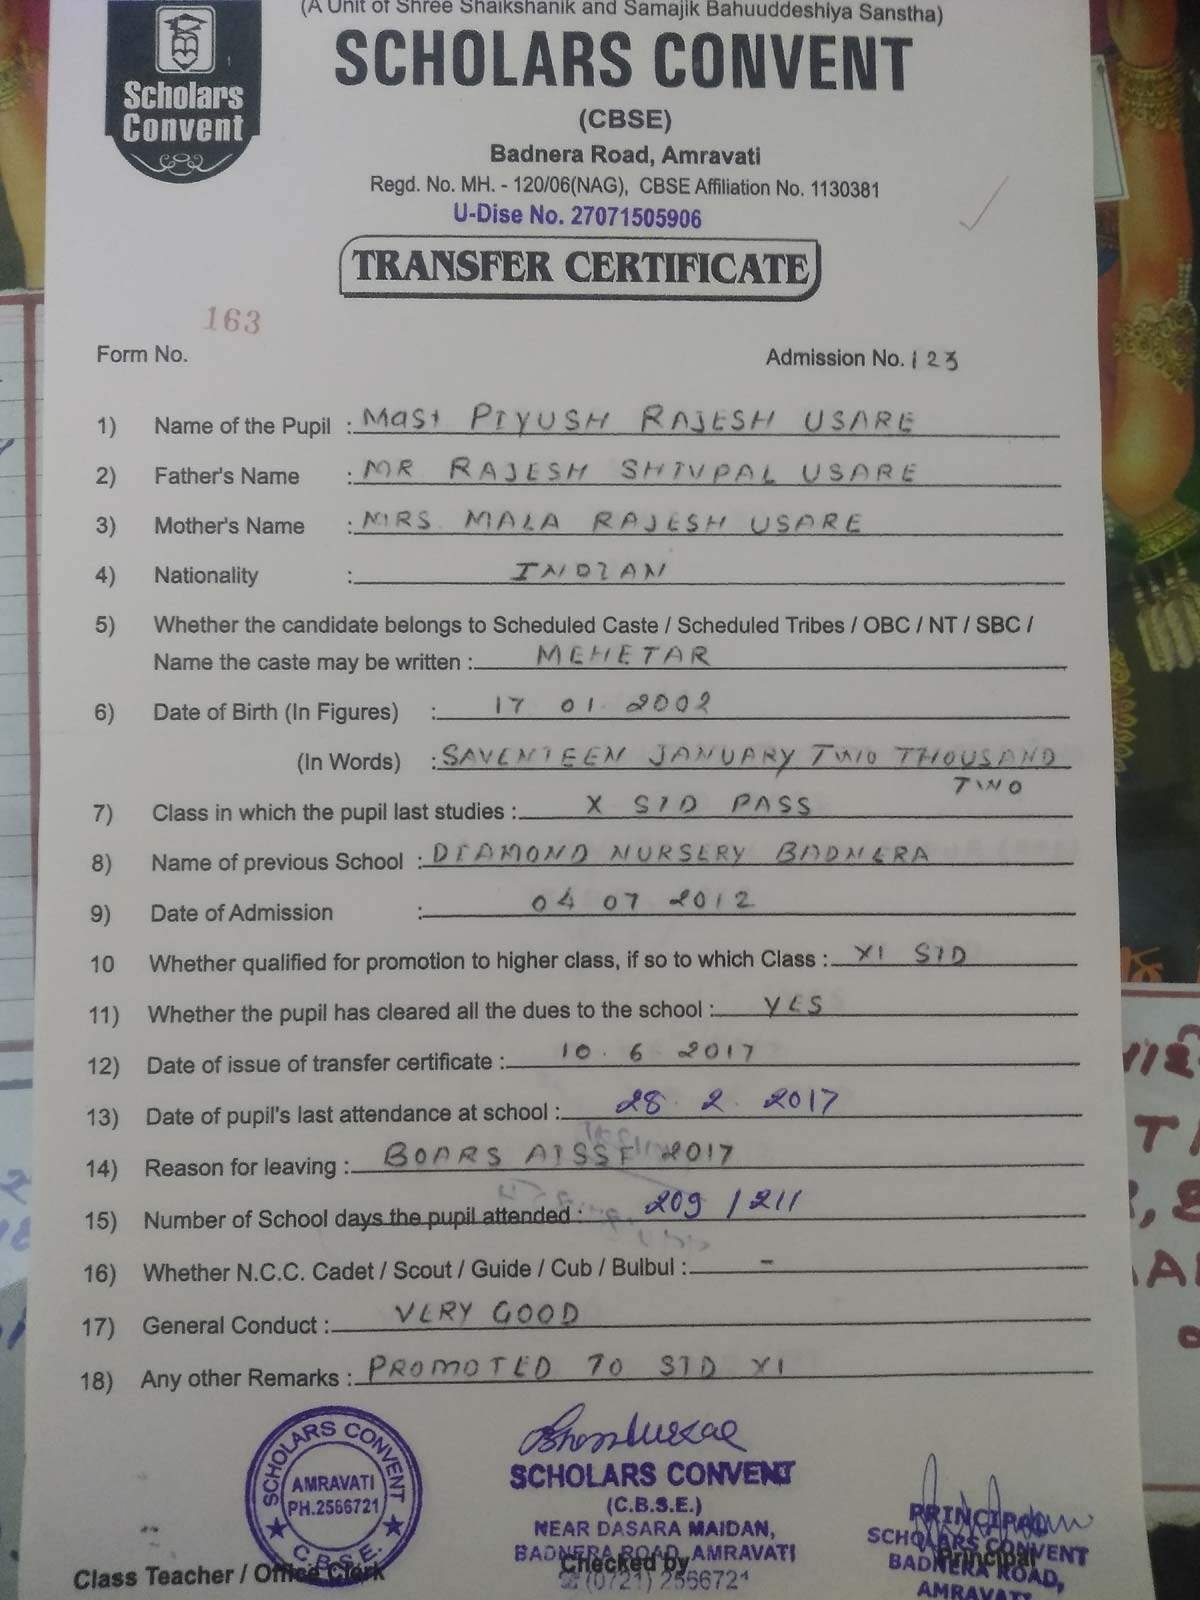 (A Unit of Shree Shaikshanik and Samajik Bahuuddeshiya Sanstha)
Scholars
Convent
SCHOLARS CONVENT
(CBSE)
Badnera Road, Amravati
Regd. No. MH. - 120/06(NAG), CBSE Affiliation No. 1130381
U-Dise No. 27071505906
TRANSFER CERTIFICATE
163
Form No.
Admission No. 123
1) Name of the Pupil : Mast PIYUSH RAJESH USARE
2) Father's Name : MR RAJESH SHIVPAL USARE
3) Mother's Name : MRS. MALA RAJESH USARE
4) Nationality : INDIAN
5) Whether the candidate belongs to Scheduled Caste / Scheduled Tribes / OBC / NT / SBC /
Name the caste may be written : MEHETAR
6) Date of Birth (In Figures) : 17 01. 2002
(In Words) : SAVENTEEN JANUARY TWO THOUSAND
TWO
7) Class in which the pupil last studies : X STD PASS
8) Name of previous School : DIAMOND NURSERY BADNERA
9) Date of Admission : 04 07 2012
10 Whether qualified for promotion to higher class, if so to which Class : XI STD
11) Whether the pupil has cleared all the dues to the school : YES
12) Date of issue of transfer certificate : 10. 6 2017
13) Date of pupil's last attendance at school : 28. 2. 2017
14) Reason for leaving : BOARS AISSE 2017
15) Number of School days the pupil attended : 209 / 211
16) Whether N.C.C. Cadet / Scout / Guide / Cub / Bulbul : -
17) General Conduct : VERY GOOD
18) Any other Remarks : PROMOTED TO STD XI
SCHOLARS CONVENT
AMRAVATI
PH.2566721
C.B.S.E.
Class Teacher / Office Clerk
SCHOLARS CONVENT
(C.B.S.E.)
NEAR DASARA MAIDAN,
BADNERA ROAD, AMRAVATI
Checked by
☏ (0721) 2566721
PRINCIPAL
SCHOLARS CONVENT
Principal
BADNERA ROAD,
AMRAVATI